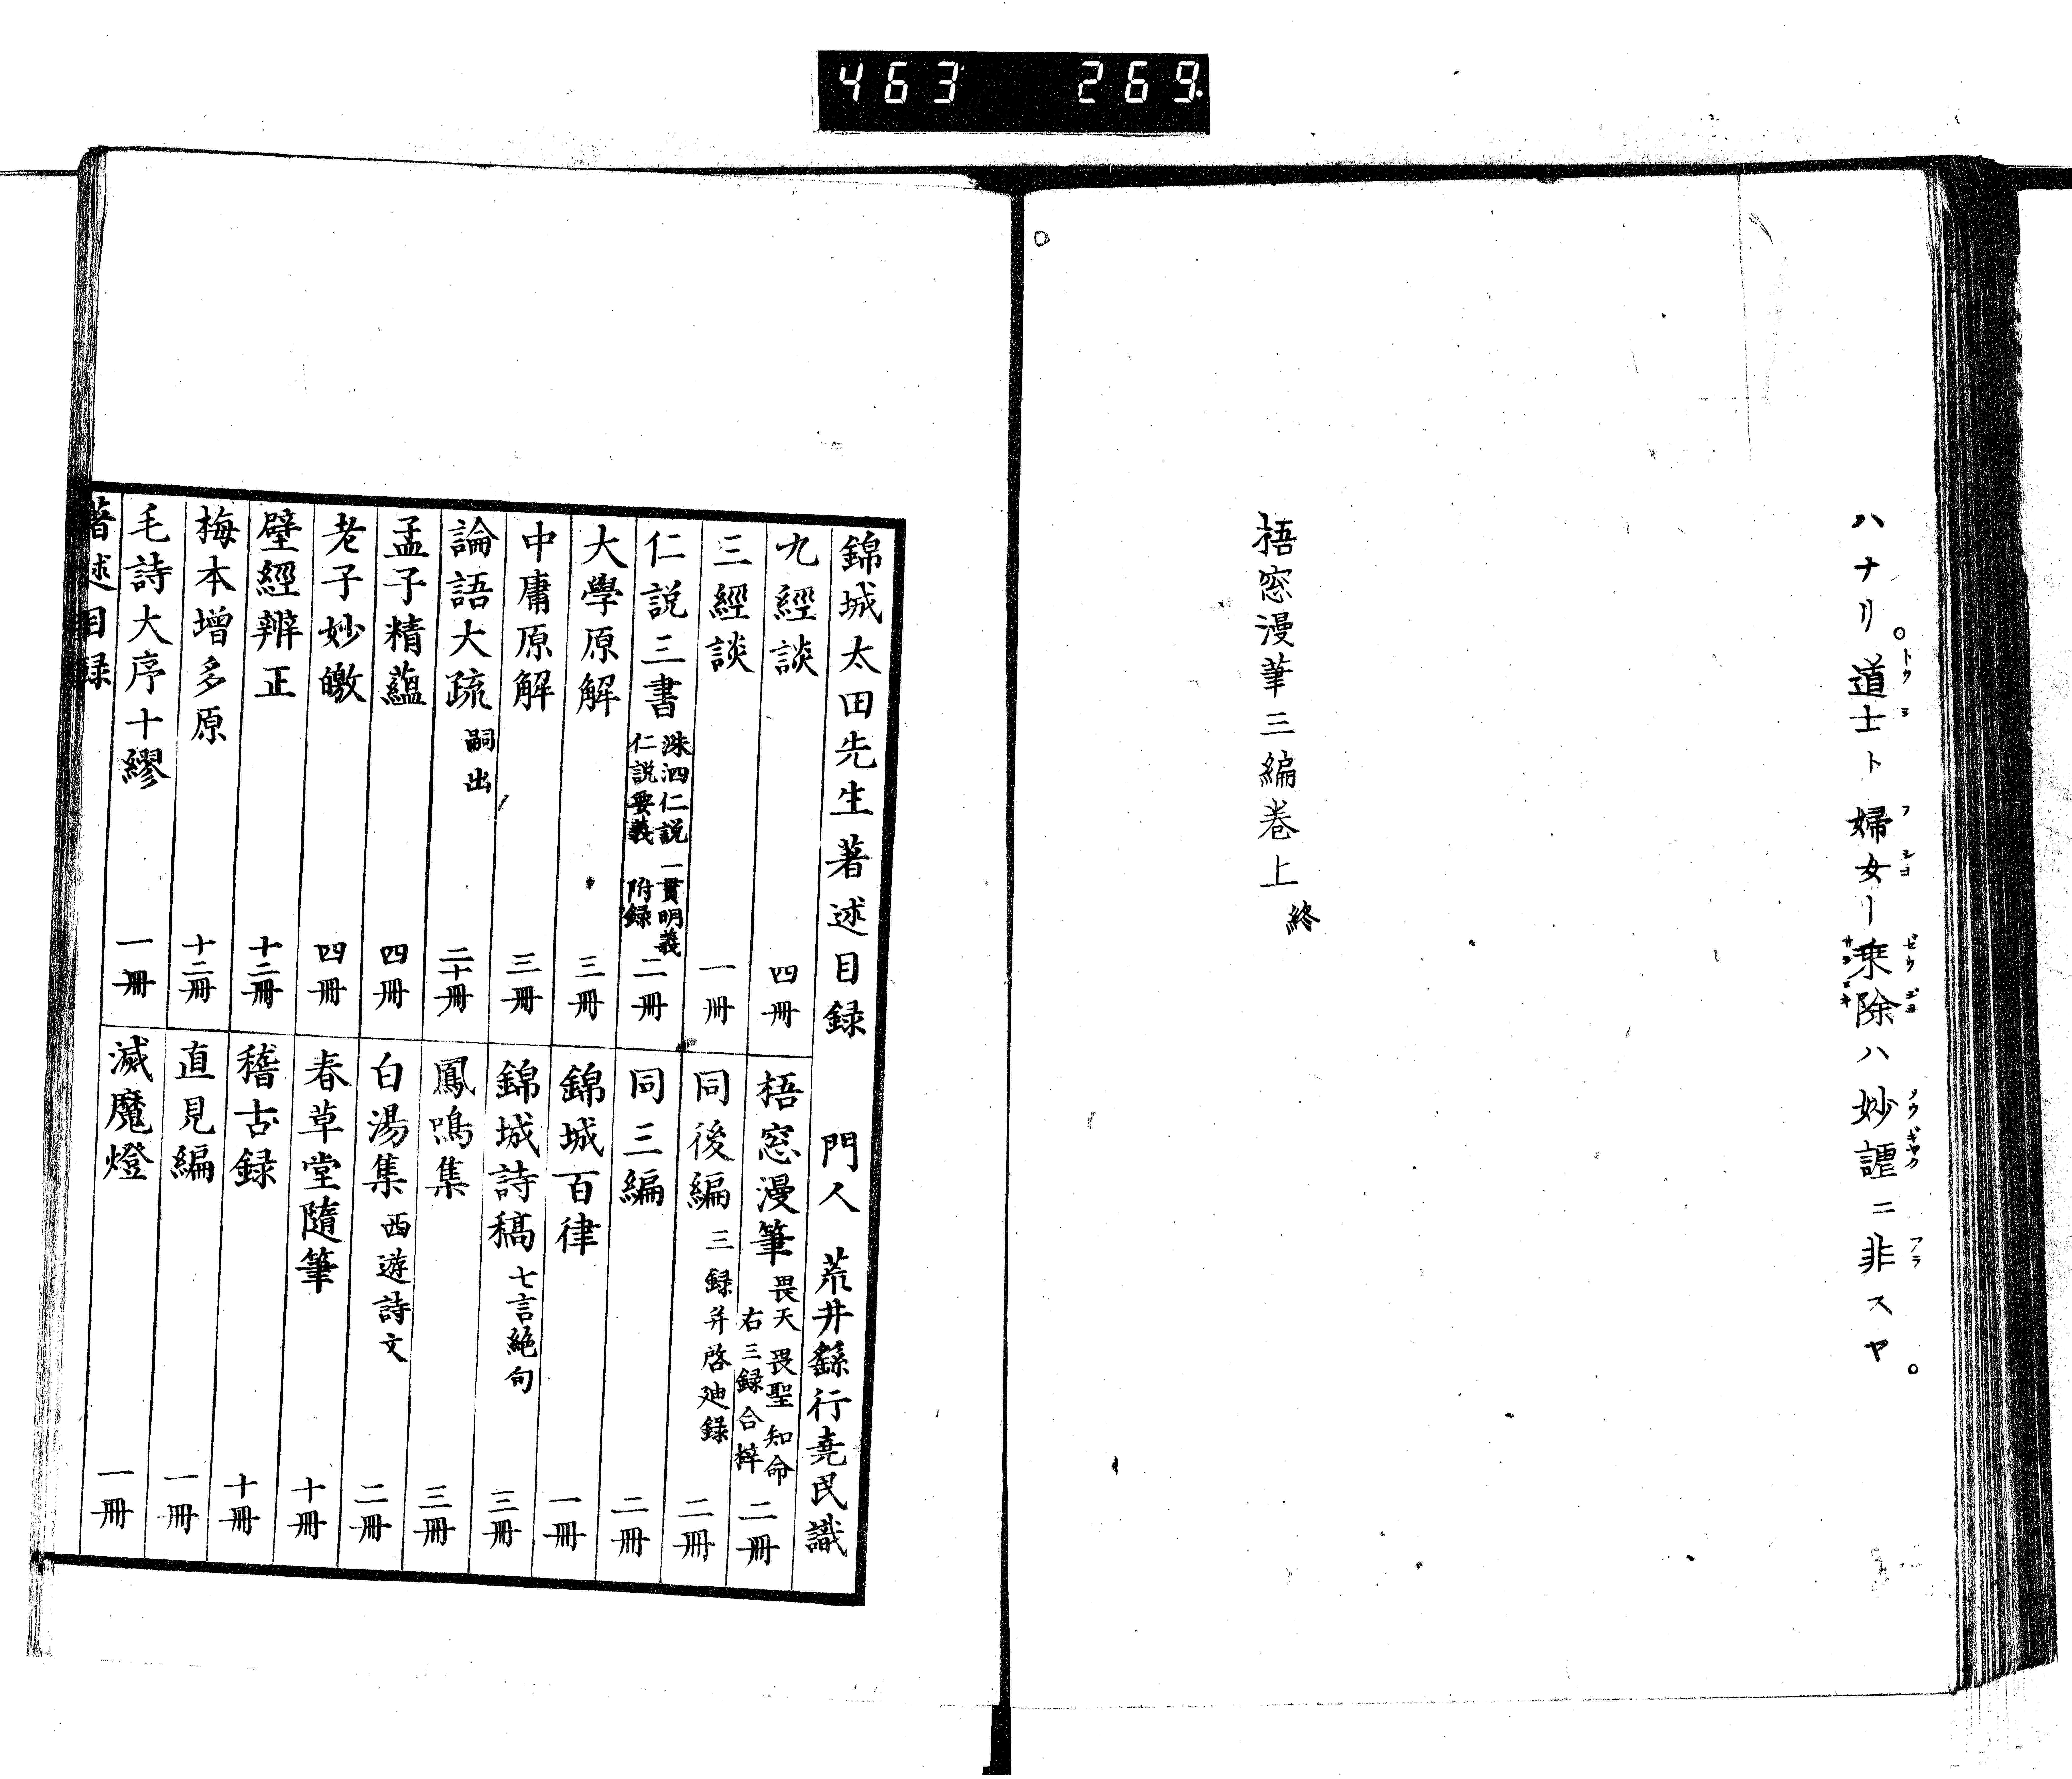 463 269
ハナリ道士ト婦女ー乗除ハ妙謔ニ非スヤ
梧窓漫筆三編巻上終
錦城太田先生著述目録 門人 荒井繇行堯民識
九經談 四冊
三經談 一冊
仁説三書 洙泗仁説 一貫明義 仁説要義 附録 二冊
大學原解 三冊
中庸原解 三冊
論語大疏 嗣出 二十冊
孟子精蘊 四冊
老子妙皦 四冊
壁經辨正 十二冊
梅本增多原 十二冊
毛詩大序十繆 一冊
梧窓漫筆 畏天 畏聖 知命 右三録合梓 二冊
同後編 三録并啓廸録 二冊
同三編 二冊
錦城百律 一冊
錦城詩稿 七言絶句 三冊
鳳鳴集 三冊
白湯集 西遊詩文 二冊
春草堂隨筆 十冊
稽古録 十冊
直見編 一冊
滅魔燈 一冊
著述目録